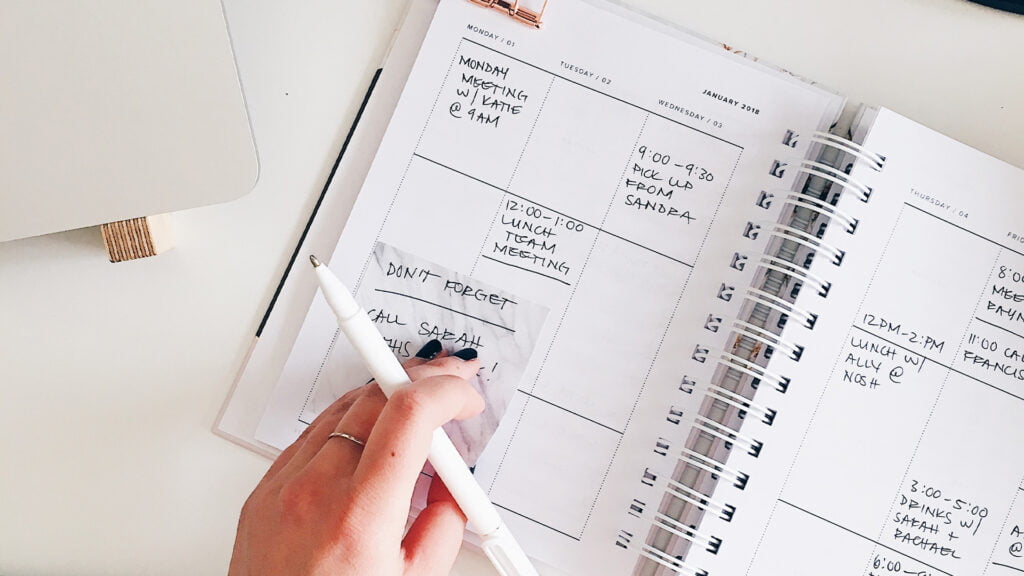 MONDAY / 01
MONDAY
MEETING
W/ KATIE
@ 9AM
TUESDAY / 02
12:00-1:00
LUNCH
TEAM
MEETING
JANUARY 2018
WEDNESDAY / 03
9:00-9:30
PICK UP
FROM
SANDRA
DON'T FORGET
CALL SARAH
THURSDAY / 04
12PM-2:PM
LUNCH W/
ALLY @
NOSH
11:00
3:00-5:00
DRINKS W/
SARAH +
RACHAEL